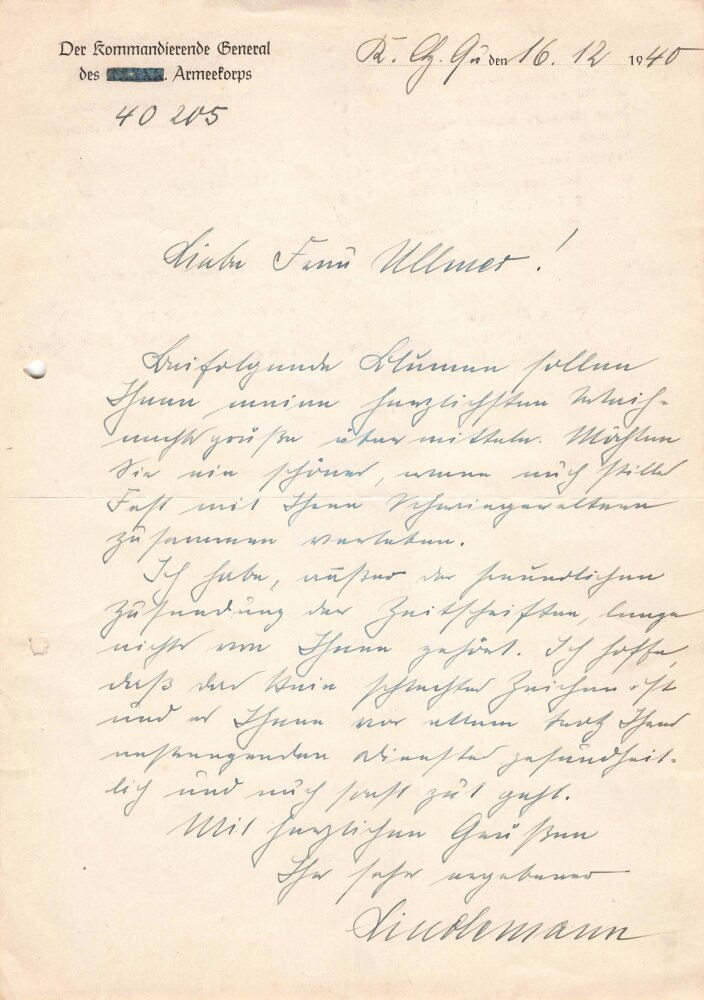 Der Kommandierende General
des Armeekorps
K. H. Qu den 16. 12 1940
40 205
Liebe Frau Ullmer!
Beifolgende Blumen sollen
Ihnen meine herzlichsten Weih-
nachtsgrüße übermitteln. Möchten
Sie ein schönes, wenn auch stilles
Fest mit Ihren Schwiegereltern
zusammen verleben.
Ich habe, außer der freundlichen
Zusendung der Zeitschriften, lange
nichts von Ihnen gehört. Ich hoffe,
daß das kein schlechtes Zeichen ist
und es Ihnen vor allem trotz Ihres
anstrengenden Dienstes gesundheit-
lich und auch sonst gut geht.
Mit herzlichen Grüßen
Ihr sehr ergebener
Lindemann